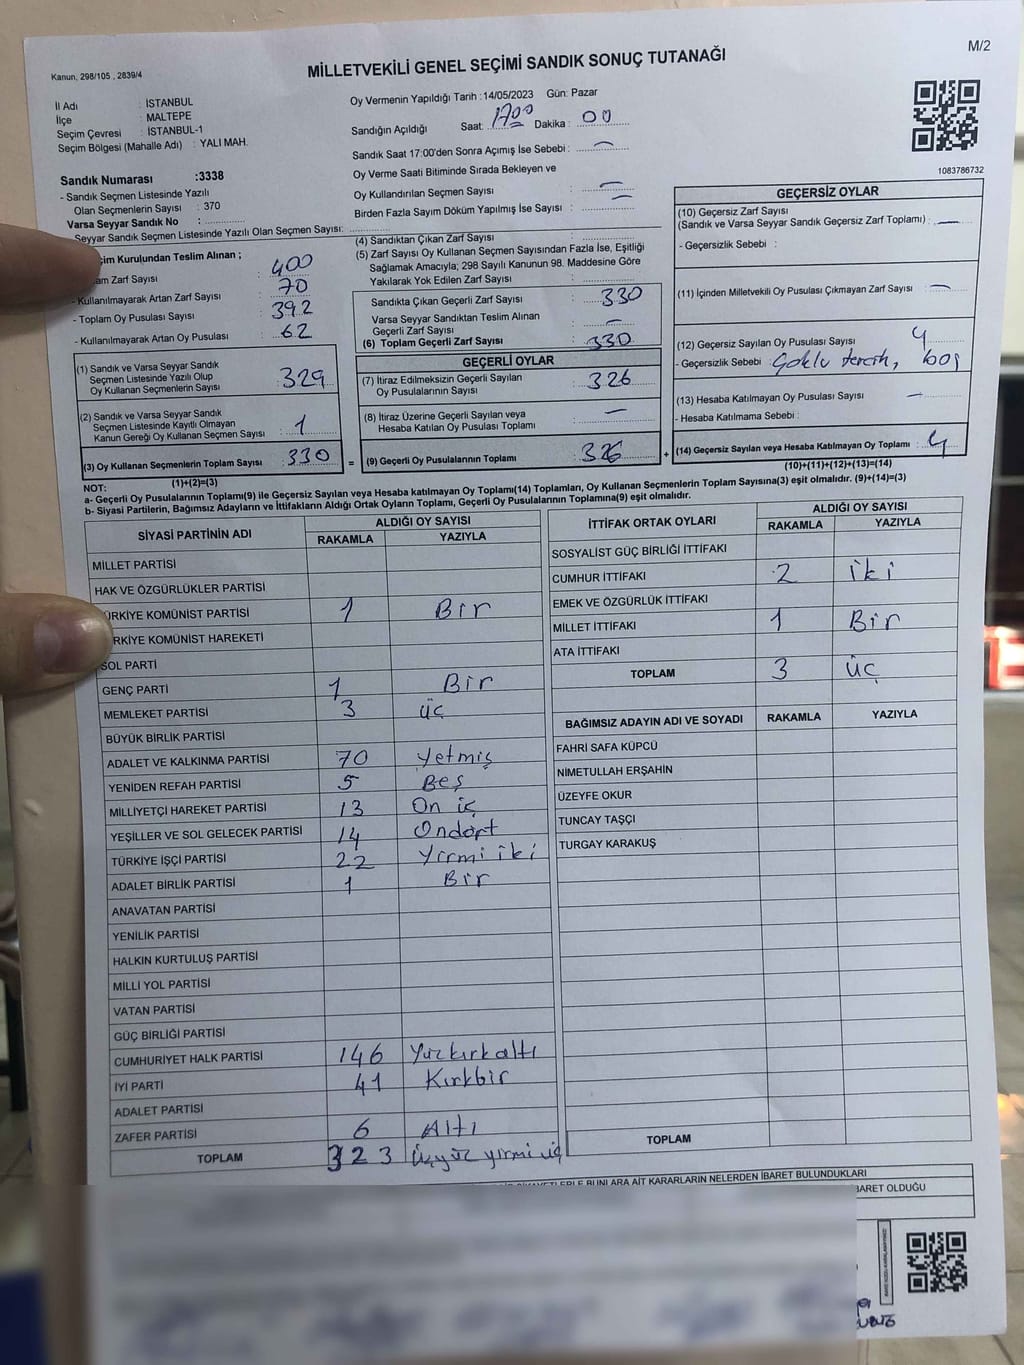 M/2
Kanun, 298/105 , 2839/4
MİLLETVEKİLİ GENEL SEÇİMİ SANDIK SONUÇ TUTANAĞI
İl Adı : İSTANBUL
İlçe : MALTEPE
Seçim Çevresi : İSTANBUL-1
Seçim Bölgesi (Mahalle Adı) : YALI MAH.
Sandık Numarası :3338
- Sandık Seçmen Listesinde Yazılı
Olan Seçmenlerin Sayısı : 370
Varsa Seyyar Sandık No :
Seyyar Sandık Seçmen Listesinde Yazılı Olan Seçmen Sayısı:
Oy Vermenin Yapıldığı Tarih :14/05/2023 Gün: Pazar
Sandığın Açıldığı Saat: 1700 Dakika : 00
Sandık Saat 17:00'den Sonra Açımış İse Sebebi : —
Oy Verme Saati Bitiminde Sırada Bekleyen ve
Oy Kullandırılan Seçmen Sayısı : —
Birden Fazla Sayım Döküm Yapılmış İse Sayısı : —
1083786732
Kurulundan Teslim Alınan ;
Zarf Sayısı : 400
- Kullanılmayarak Artan Zarf Sayısı : 70
- Toplam Oy Pusulası Sayısı : 392
- Kullanılmayarak Artan Oy Pusulası : 62
(1) Sandık ve Varsa Seyyar Sandık
Seçmen Listesinde Yazılı Olup
Oy Kullanan Seçmenlerin Sayısı : 329
(2) Sandık ve Varsa Seyyar Sandık
Seçmen Listesinde Kayıtlı Olmayan
Kanun Gereği Oy Kullanan Seçmen Sayısı : 1
(3) Oy Kullanan Seçmenlerin Toplam Sayısı : 330
(1)+(2)=(3)
(4) Sandıktan Çıkan Zarf Sayısı :
(5) Zarf Sayısı Oy Kullanan Seçmen Sayısından Fazla İse, Eşitliği
Sağlamak Amacıyla; 298 Sayılı Kanunun 98. Maddesine Göre
Yakılarak Yok Edilen Zarf Sayısı :
Sandıkta Çıkan Geçerli Zarf Sayısı : 330
Varsa Seyyar Sandıktan Teslim Alınan
Geçerli Zarf Sayısı : —
(6) Toplam Geçerli Zarf Sayısı : 330
GEÇERLİ OYLAR
(7) İtiraz Edilmeksizin Geçerli Sayılan
Oy Pusulalarının Sayısı : 326
(8) İtiraz Üzerine Geçerli Sayılan veya
Hesaba Katılan Oy Pusulası Toplamı : —
= (9) Geçerli Oy Pusulalarının Toplamı : 326 +
GEÇERSİZ OYLAR
(10) Geçersiz Zarf Sayısı
(Sandık ve Varsa Seyyar Sandık Geçersiz Zarf Toplamı) : —
- Geçersizlik Sebebi :
(11) İçinden Milletvekili Oy Pusulası Çıkmayan Zarf Sayısı : —
(12) Geçersiz Sayılan Oy Pusulası Sayısı : 4
- Geçersizlik Sebebi : Çoklu tercih, boş
(13) Hesaba Katılmayan Oy Pusulası Sayısı : —
- Hesaba Katılmama Sebebi :
(14) Geçersiz Sayılan veya Hesaba Katılmayan Oy Toplamı : 4
(10)+(11)+(12)+(13)=(14)
NOT:
a- Geçerli Oy Pusulalarının Toplamı(9) ile Geçersiz Sayılan veya Hesaba katılmayan Oy Toplamı(14) Toplamları, Oy Kullanan Seçmenlerin Toplam Sayısına(3) eşit olmalıdır. (9)+(14)=(3)
b- Siyasi Partilerin, Bağımsız Adayların ve İttifakların Aldığı Ortak Oyların Toplamı, Geçerli Oy Pusulalarının Toplamına(9) eşit olmalıdır.
SİYASİ PARTİNİN ADI ALDIĞI OY SAYISI
RAKAMLA YAZIYLA
MİLLET PARTİSİ
HAK VE ÖZGÜRLÜKLER PARTİSİ
ÜRKİYE KOMÜNİST PARTİSİ 1 Bir
RKİYE KOMÜNİST HAREKETİ
SOL PARTİ
GENÇ PARTİ 1 Bir
MEMLEKET PARTİSİ 3 üç
BÜYÜK BİRLİK PARTİSİ
ADALET VE KALKINMA PARTİSİ 70 Yetmiş
YENİDEN REFAH PARTİSİ 5 Beş
MİLLİYETÇİ HAREKET PARTİSİ 13 On üç
YEŞİLLER VE SOL GELECEK PARTİSİ 14 Ondört
TÜRKİYE İŞÇİ PARTİSİ 22 Yirmi iki
ADALET BİRLİK PARTİSİ 1 Bir
ANAVATAN PARTİSİ
YENİLİK PARTİSİ
HALKIN KURTULUŞ PARTİSİ
MİLLİ YOL PARTİSİ
VATAN PARTİSİ
GÜÇ BİRLİĞİ PARTİSİ
CUMHURİYET HALK PARTİSİ 146 Yüzkırkaltı
İYİ PARTİ 41 Kırkbir
ADALET PARTİSİ
ZAFER PARTİSİ 6 Altı
TOPLAM 323 Üçyüz yirmi üç
İTTİFAK ORTAK OYLARI ALDIĞI OY SAYISI
RAKAMLA YAZIYLA
SOSYALİST GÜÇ BİRLİĞİ İTTİFAKI
CUMHUR İTTİFAKI 2 iki
EMEK VE ÖZGÜRLÜK İTTİFAKI
MİLLET İTTİFAKI 1 Bir
ATA İTTİFAKI
TOPLAM 3 üç
BAĞIMSIZ ADAYIN ADI VE SOYADI RAKAMLA YAZIYLA
FAHRİ SAFA KÜPCÜ
NİMETULLAH ERŞAHİN
ÜZEYFE OKUR
TUNCAY TAŞÇI
TURGAY KARAKUŞ
TOPLAM
BUNLARA AİT KARARLARIN NELERDEN İBARET BULUNDUKLARI
BARET OLDUĞU